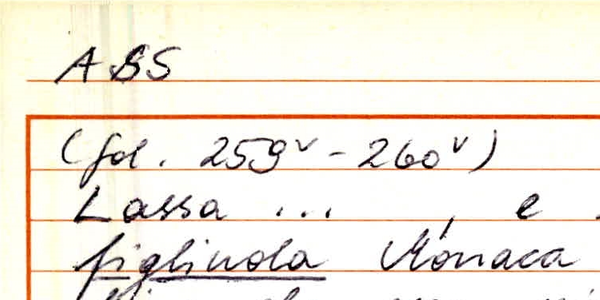 ASS
(fol. 259v - 260v)
Lassa ... , e
figliuola Mònaca